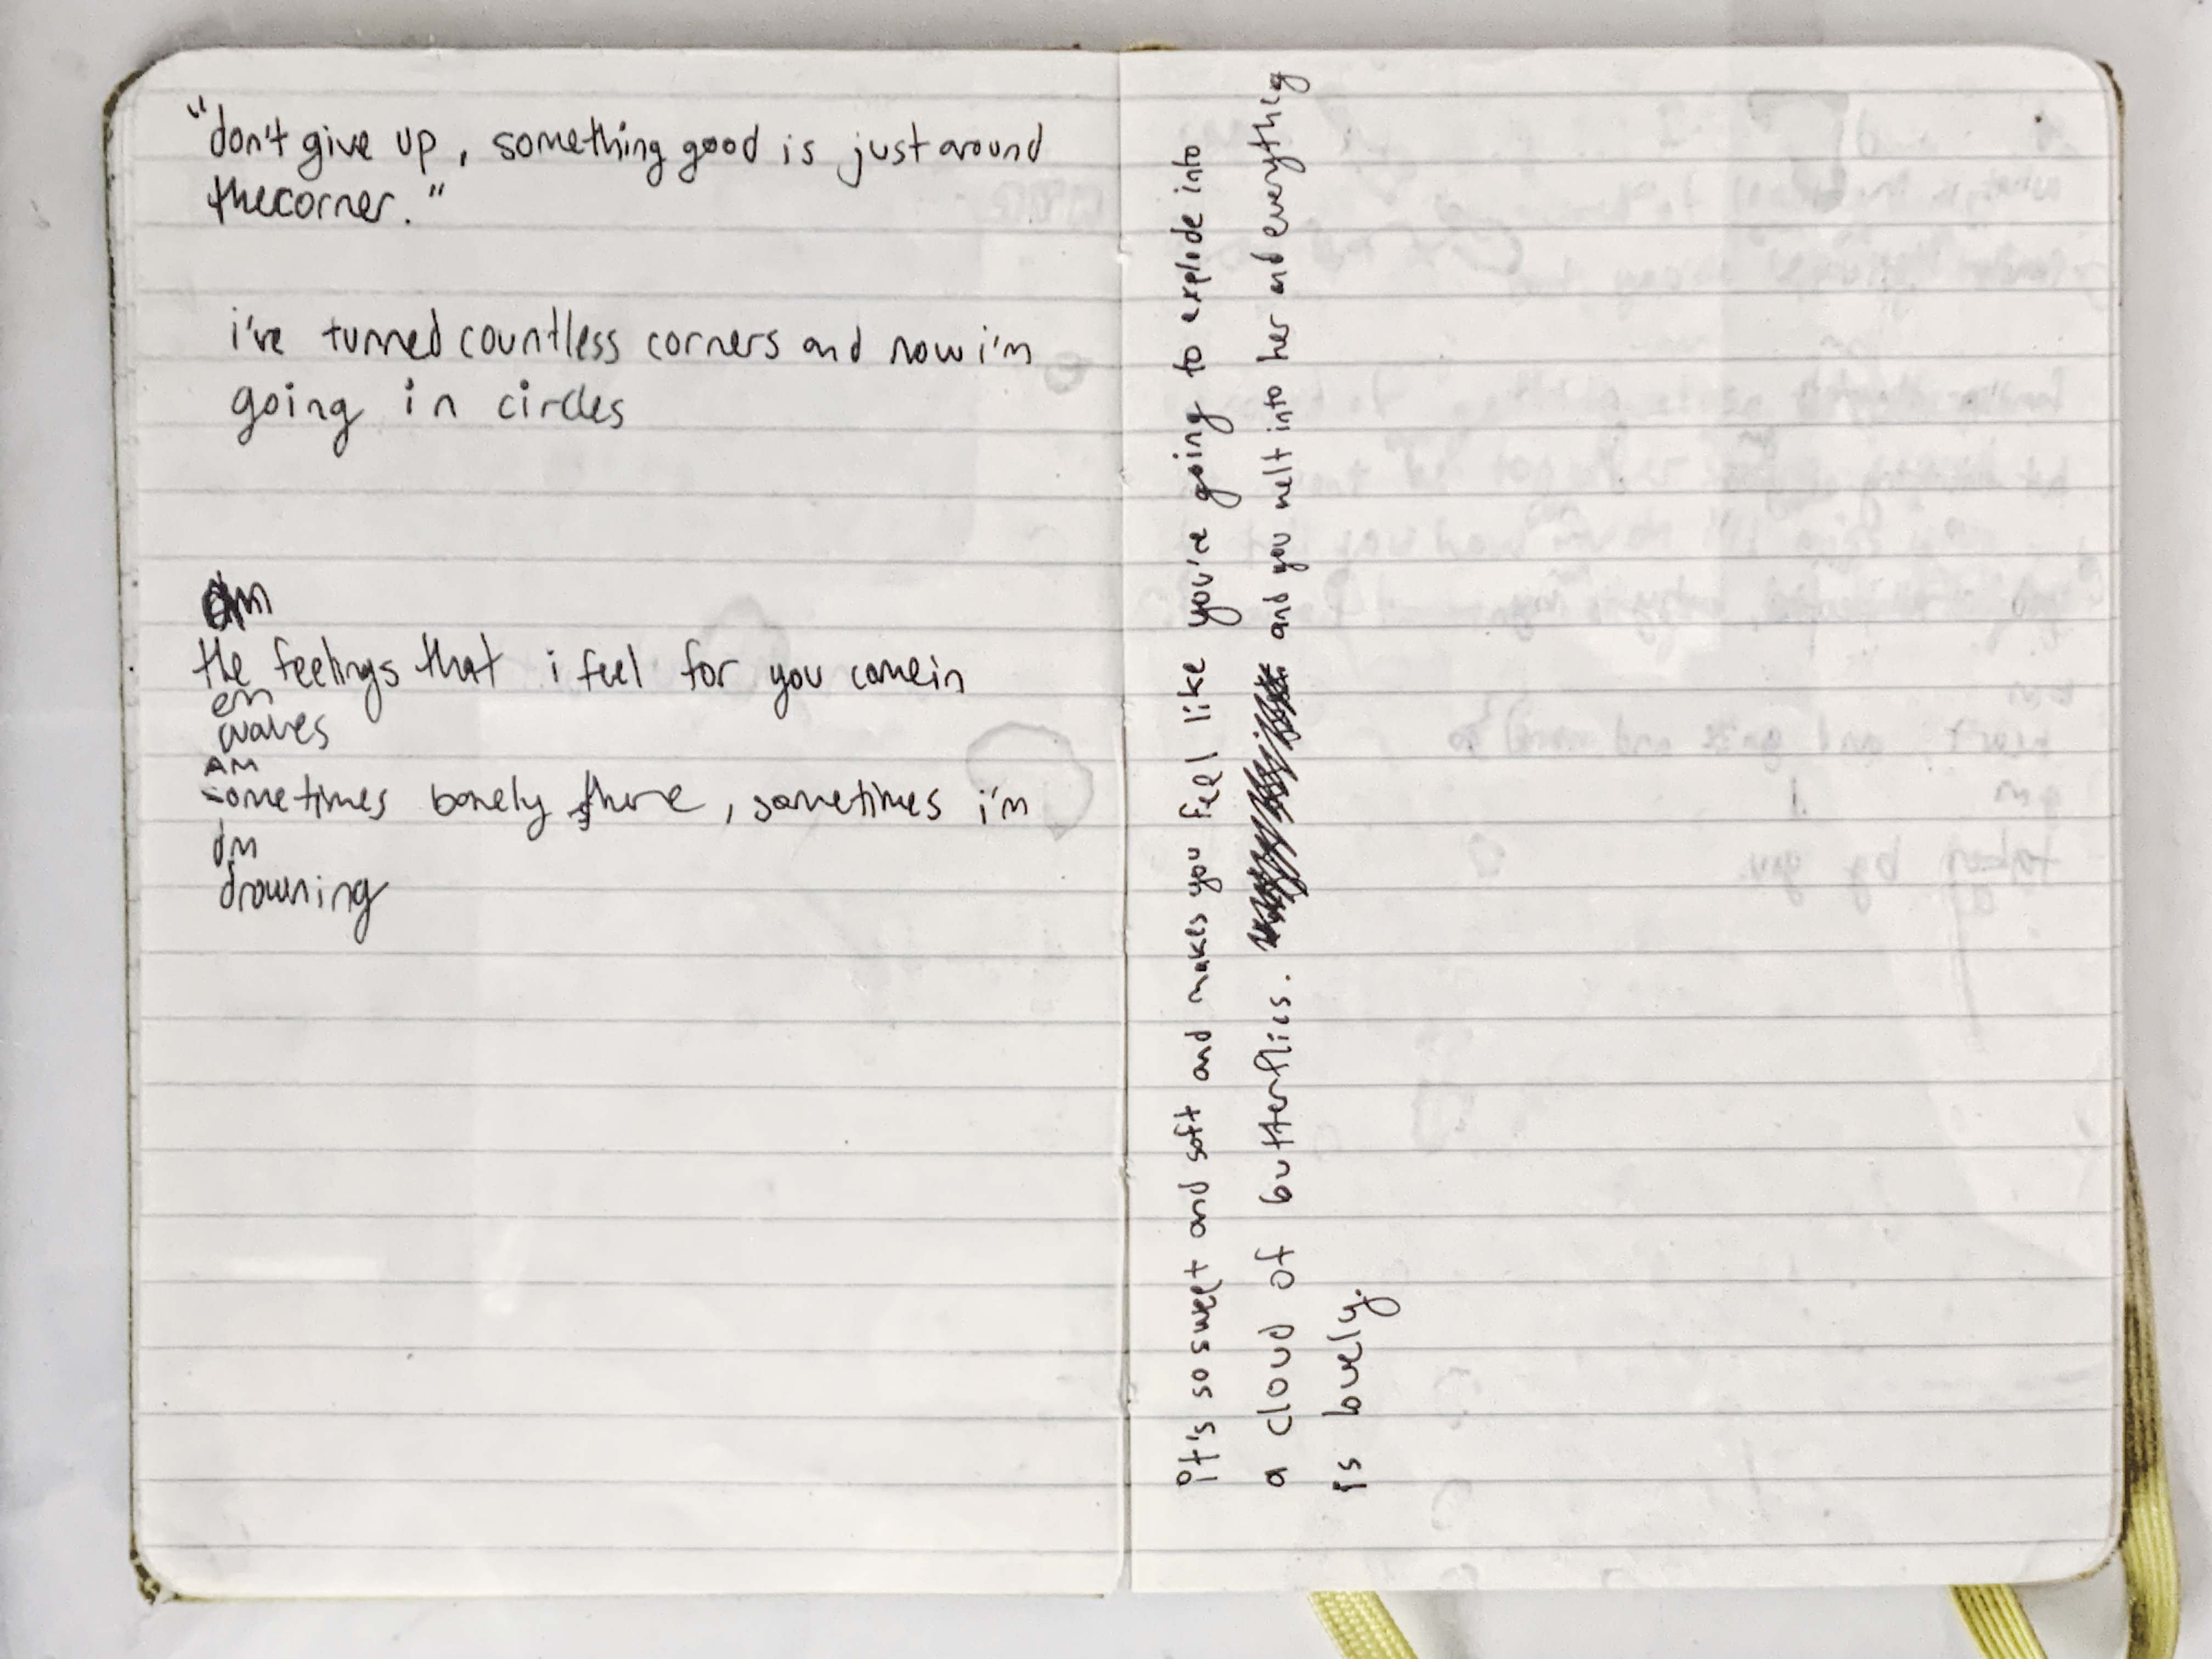 "don't give up, something good is just around
the corner."
i've turned countless corners and now i'm
going in circles
the feelings that i feel for you come in
em
waves
AM
sometimes barely there, sometimes i'm
dm
drowning
it's so sweet and soft and makes you feel like you're going to explode into
a cloud of butterflies. and you melt into her and everything
is lovely.